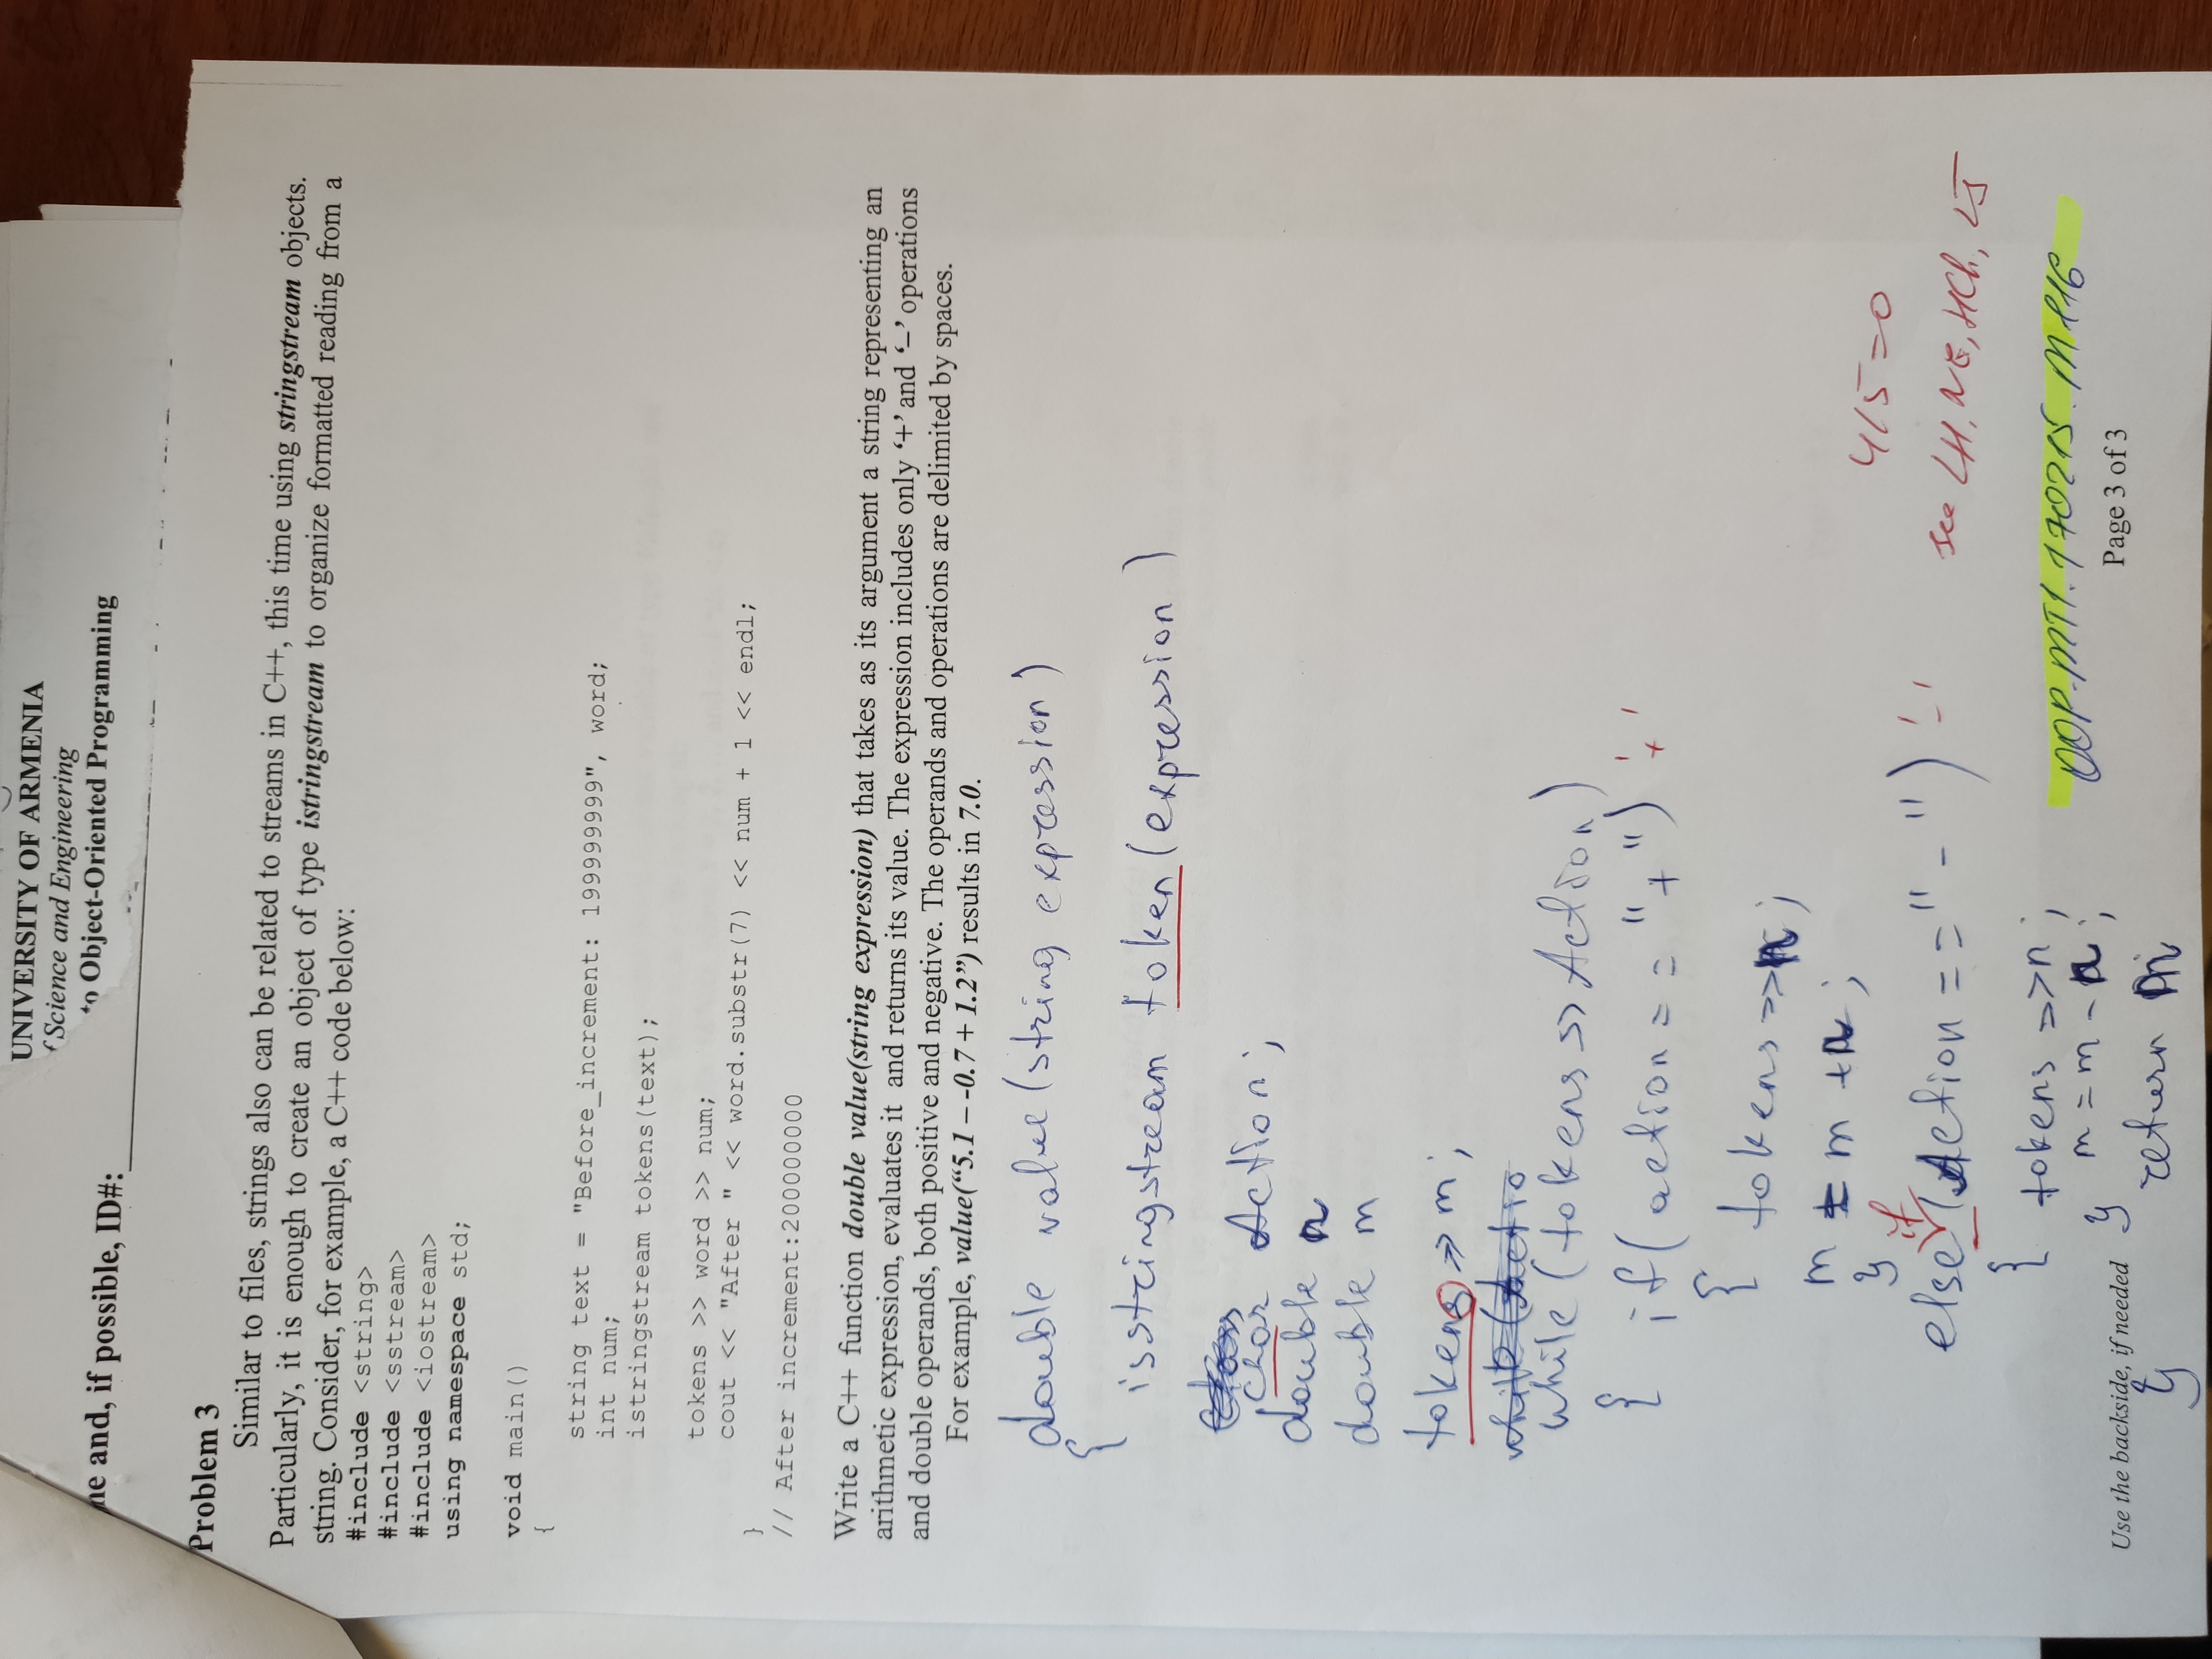 UNIVERSITY OF ARMENIA
Science and Engineering
to Object-Oriented Programming
me and, if possible, ID#:
Problem 3
Similar to files, strings also can be related to streams in C++, this time using stringstream objects.
Particularly, it is enough to create an object of type istringstream to organize formatted reading from a
string. Consider, for example, a C++ code below:
#include <string>
#include <sstream>
#include <iostream>
using namespace std;
void main()
{
string text = "Before_increment: 199999999", word;
int num;
istringstream tokens(text);
tokens >> word >> num;
cout << "After " << word.substr(7) << num + 1 << endl;
}
// After increment:200000000
Write a C++ function double value(string expression) that takes as its argument a string representing an
arithmetic expression, evaluates it and returns its value. The expression includes only ‘+’ and ‘–’ operations
and double operands, both positive and negative. The operands and operations are delimited by spaces.
For example, value(“5.1 – -0.7 + 1.2”) results in 7.0.
double value(string expression)
{
isstringstream token(expression)
char Action;
double n
double m
tokens >> m;
while (tokens >> Action)
{ if(action == "+") '+'
{ tokens >> n;
m = m + n;
}
if
else (Action == "-") '-'
{ tokens >> n;
m = m - n;
}
return m
}
4/5=0
see LH, NE, HCh, LJ
OOP.MT1.170215.M116
Use the backside, if needed
Page 3 of 3